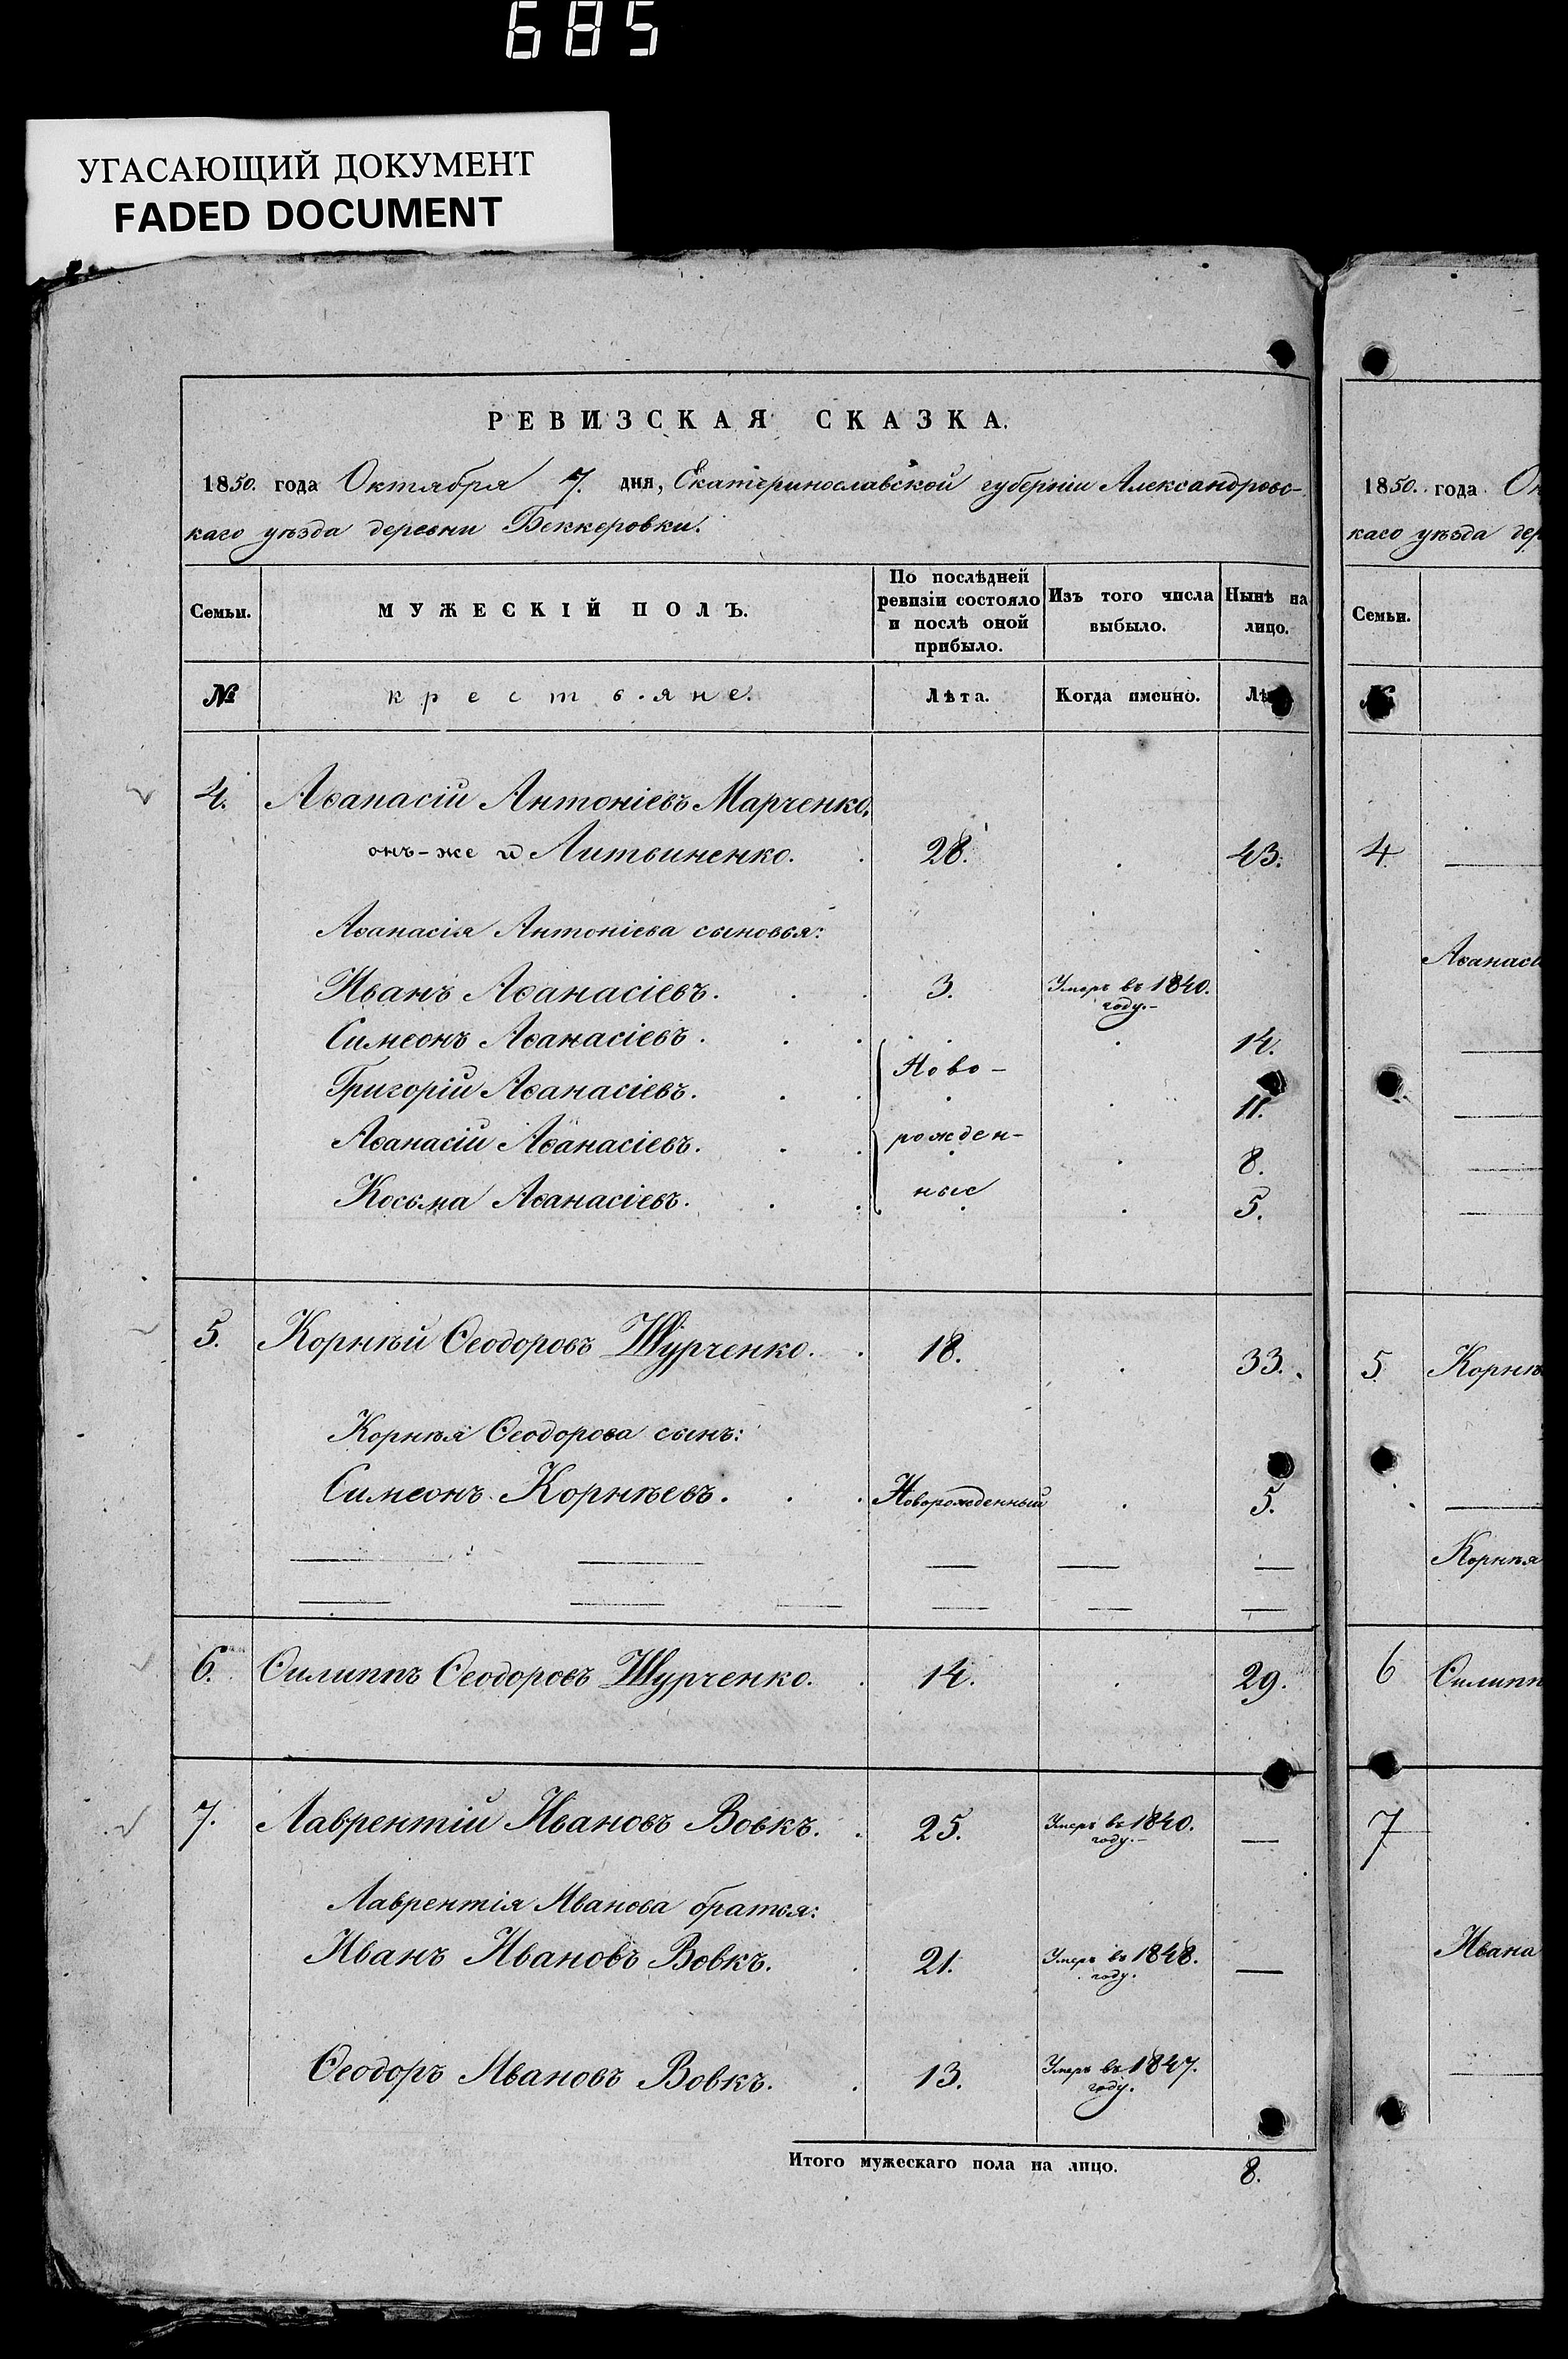 685
УГАСАЮЩИЙ ДОКУМЕНТ
FADED DOCUMENT
РЕВИЗСКАЯ СКАЗКА.
1850. года Октября 7. дня, Екатеринославской губерніи Александровс-
каго уѣзда деревни Беккеровки.
Семьи. МУЖЕСКІЙ ПОЛЪ. По послѣдней ревизіи состояло и послѣ оной прибыло. Изъ того числа выбыло. Нынѣ на лицо.
№ крестьяне. Лѣта. Когда именно.
4. Аѳанасій Антоніевъ Марченко,
онъ-же и Литвиненко. 28. 43.
Аѳанасія Антоніева сыновья:
Иванъ Аѳанасіевъ. 3. Умеръ въ 1840. году.-
Симеонъ Аѳанасіевъ. 14.
Ново-
Григорій Аѳанасіевъ. 11.
Аѳанасій Аѳанасіевъ. рожден- 8.
Косьма Аѳанасіевъ. ные 5.
5. Корнѣй Ѳеодоровъ Шурченко. 18. 33.
Корнѣя Ѳеодорова сынъ:
Симеонъ Корнѣевъ. Новорожденный 5.
6. Ѳилиппъ Ѳеодоровъ Шурченко. 14. 29.
7. Лаврентій Ивановъ Вовкъ. 25. Умеръ въ 1840. году.- —
Лаврентія Иванова братья:
Иванъ Ивановъ Вовкъ. 21. Умеръ въ 1848. году. —
Ѳеодоръ Ивановъ Вовкъ. 13. Умеръ въ 1847. году.
Итого мужескаго пола на лицо. 8.
1850. года
каго уѣзда
Семьи.
4
5
6
7